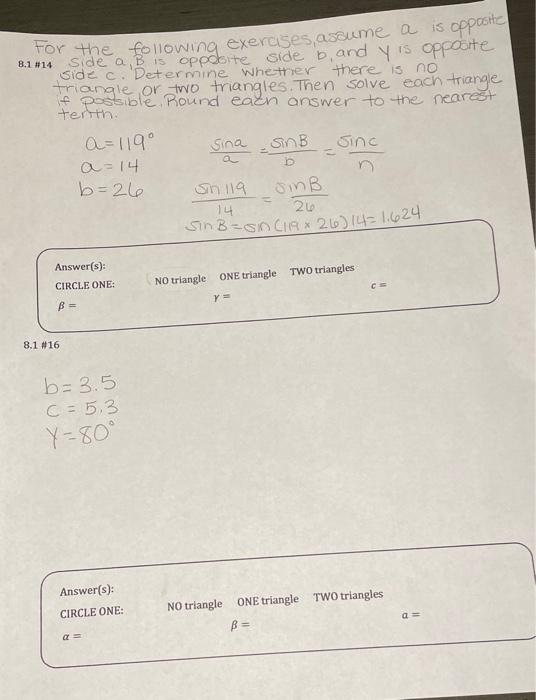 For the following exercises, assume a is opposite
8.1 #14 side a, B is opposite side b, and γ is opposite
side c. Determine whether there is no
triangle, or two triangles. Then solve each triangle
if possible. Round each answer to the nearest
tenth.
a=119°
a=14
b=26
sin a/a = sin B/b = sin c/n
sin 119/14 = sin B/26
sin B = sin (119 × 26) 14 = 1.624
Answer(s):
CIRCLE ONE: NO triangle ONE triangle TWO triangles
β = γ = c =
8.1 #16
b=3.5
c = 5.3
γ=80°
Answer(s):
CIRCLE ONE: NO triangle ONE triangle TWO triangles
α = β = a =